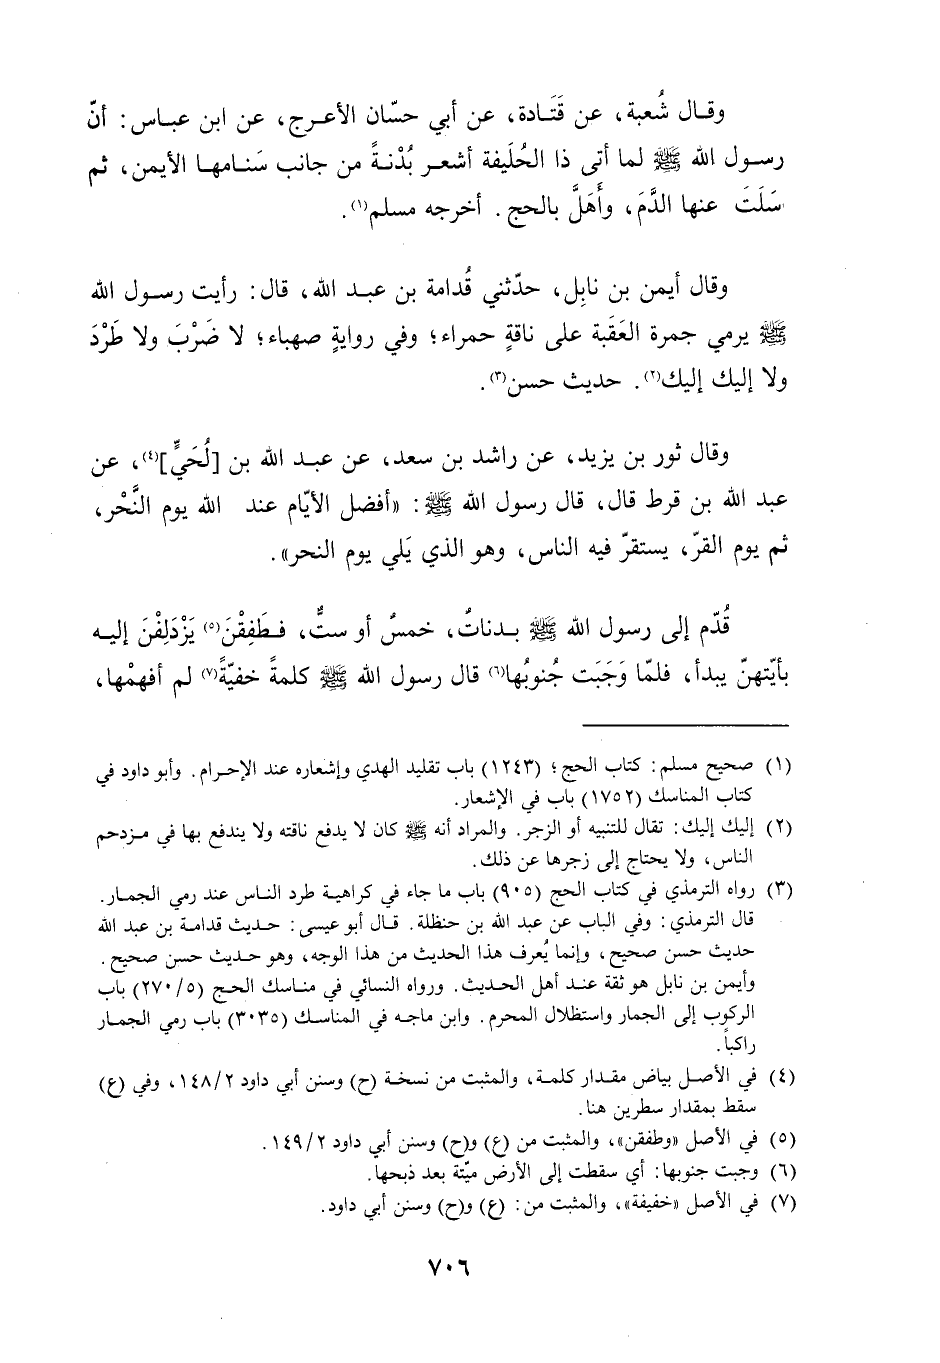 وقال شُعبة، عن قَتَادة، عن أبي حسّان الأعرج، عن ابن عباس: أنّ
رسول الله ﷺ لما أتى ذا الحُلَيفة أشعر بُدْنةً من جانب سَنامها الأيمن، ثم
سَلَتَ عنها الدَّمَ، وأَهَلَّ بالحج. أخرجه مسلم(١).
وقال أيمن بن نابِل، حدّثني قُدامة بن عبد الله، قال: رأيت رسول الله
ﷺ يرمي جمرة العَقَبة على ناقةٍ حمراء؛ وفي روايةٍ صهباء؛ لا ضَرْبَ ولا طَرْدَ
ولا إليك إليك(٢). حديث حسن(٣).
وقال ثور بن يزيد، عن راشد بن سعد، عن عبد الله بن [لُحَيٍّ](٤)، عن
عبد الله بن قرط قال، قال رسول الله ﷺ: «أفضل الأيّام عند الله يوم النَّحْر،
ثم يوم القرّ، يستقرّ فيه الناس، وهو الذي يَلي يوم النحر».
قُدّم إلى رسول الله ﷺ بدناتٌ، خمسُ أو ستٌّ، فطَفِقْنَ(٥) يَزْدَلِفْنَ إليه
بأيّتهنّ يبدأ، فلمّا وَجَبَت جُنوبُها(٦) قال رسول الله ﷺ كلمةً خفيّةً(٧) لم أفهمْها،
(١) صحيح مسلم: كتاب الحج؛ (١٢٤٣) باب تقليد الهدي وإشعاره عند الإحرام. وأبو داود في
كتاب المناسك (١٧٥٢) باب في الإشعار.
(٢) إليك إليك: تقال للتنبيه أو الزجر. والمراد أنه ﷺ كان لا يدفع ناقته ولا يندفع بها في مزدحم
الناس، ولا يحتاج إلى زجرها عن ذلك.
(٣) رواه الترمذي في كتاب الحج (٩٠٥) باب ما جاء في كراهية طرد الناس عند رمي الجمار.
قال الترمذي: وفي الباب عن عبد الله بن حنظلة. قال أبو عيسى: حديث قدامة بن عبد الله
حديث حسن صحيح، وإنما يُعرف هذا الحديث من هذا الوجه، وهو حديث حسن صحيح.
وأيمن بن نابل هو ثقة عند أهل الحديث. ورواه النسائي في مناسك الحج (٢٧٠/٥) باب
الركوب إلى الجمار واستظلال المحرم. وابن ماجه في المناسك (٣٠٣٥) باب رمي الجمار
راكباً.
(٤) في الأصل بياض مقدار كلمة، والمثبت من نسخة (ح) وسنن أبي داود ١٤٨/٢، وفي (ع)
سقط بمقدار سطرين هنا.
(٥) في الأصل «وطفقن»، والمثبت من (ع) و(ح) وسنن أبي داود ١٤٩/٢.
(٦) وجبت جنوبها: أي سقطت إلى الأرض ميّتة بعد ذبحها.
(٧) في الأصل «خفيفة»، والمثبت من: (ع) و(ح) وسنن أبي داود.
٧٠٦